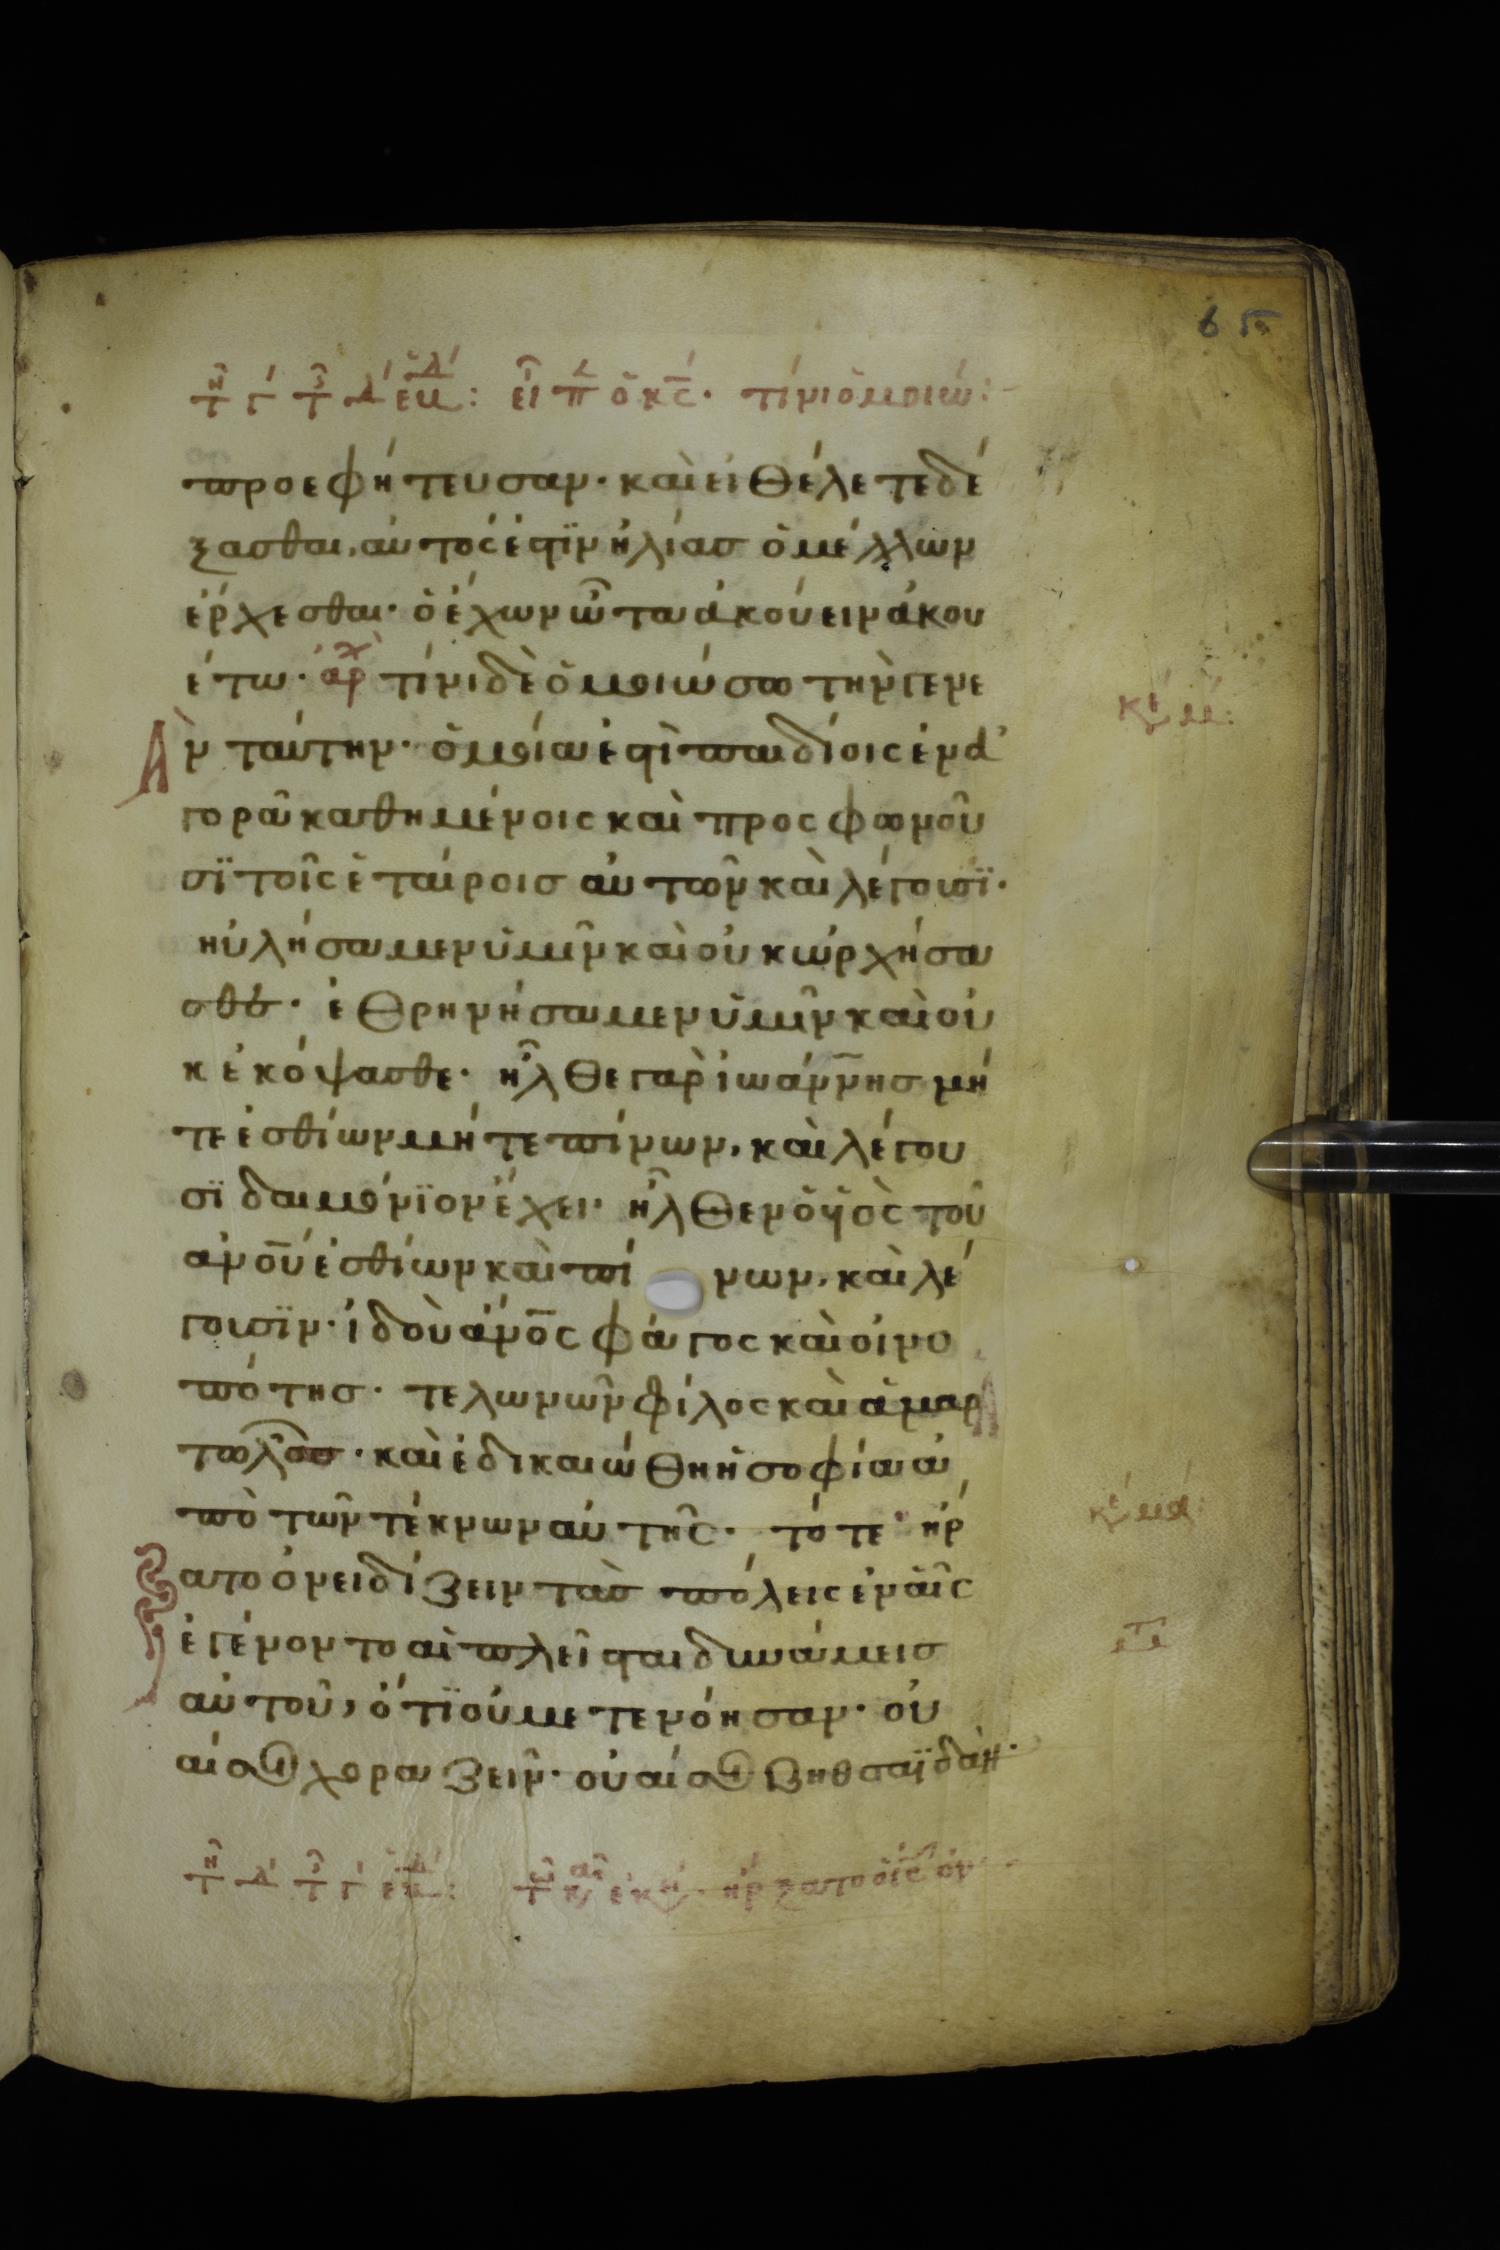 65
εἶπ ὁ κς· τίνι ὁμοιώ:
προεφήτευσαν· καὶ εἰ θέλετε δέ
ξασθαι, αὐτός ἐστϊν ἠλίασ ὁ μέλλων
ἔρχεσθαι· ὁ ἔχων ὦτα ἀκούειν ἀκου
έτω· ἀρχ τίνι δὲ ὁμοιώσω τὴν γενε
ὰν ταύτην· ὁμοία ἐστὶ παιδίοις ἐν ἀ
γορᾶ καθημένοις καὶ προσφωνοῦ
σϊ τοῖς ἑταίροισ αὐτῶν καὶ λέγουσϊ·
ηὐλήσαμεν ὑμῖν καὶ οὐκ ὠρχήσα
σθε· ἐθρηνήσαμεν ὑμῖν καὶ οὐ
κ ἐκόψασθε· ἦλθε γὰρ ἰωάννησ μή
τε ἐσθίων μήτε πίνων, καὶ λέγου
σϊ δαιμόνϊον ἔχει· ἦλθεν ὁ υἱὸς τοῦ
ανου ἐσθίων καὶ πίνων, καὶ λέ
γουσϊν· ἰδοὺ ἄνος φάγος καὶ οἰνο
πότησ· τελωνῶν φίλος καὶ ἁμαρ
τωλῶν· καὶ ἐδικαιώθη ἡ σοφία ἀ
πὸ τῶν τέκνων αὐτῆς· τότε ἤρ
ξατο ὀνειδίζειν τὰσ πόλεις ἐν αἷς
ἐγένοντο αἱ πλεῖσται δυνάμεισ
αὐτοῦ, ὅτϊ οὐ μετενόησαν· οὐ
αί σοι χοραζεῖν· οὐαί σοι βηθσαϊδὰν·
ἤρξατο ὁ ις ὀν